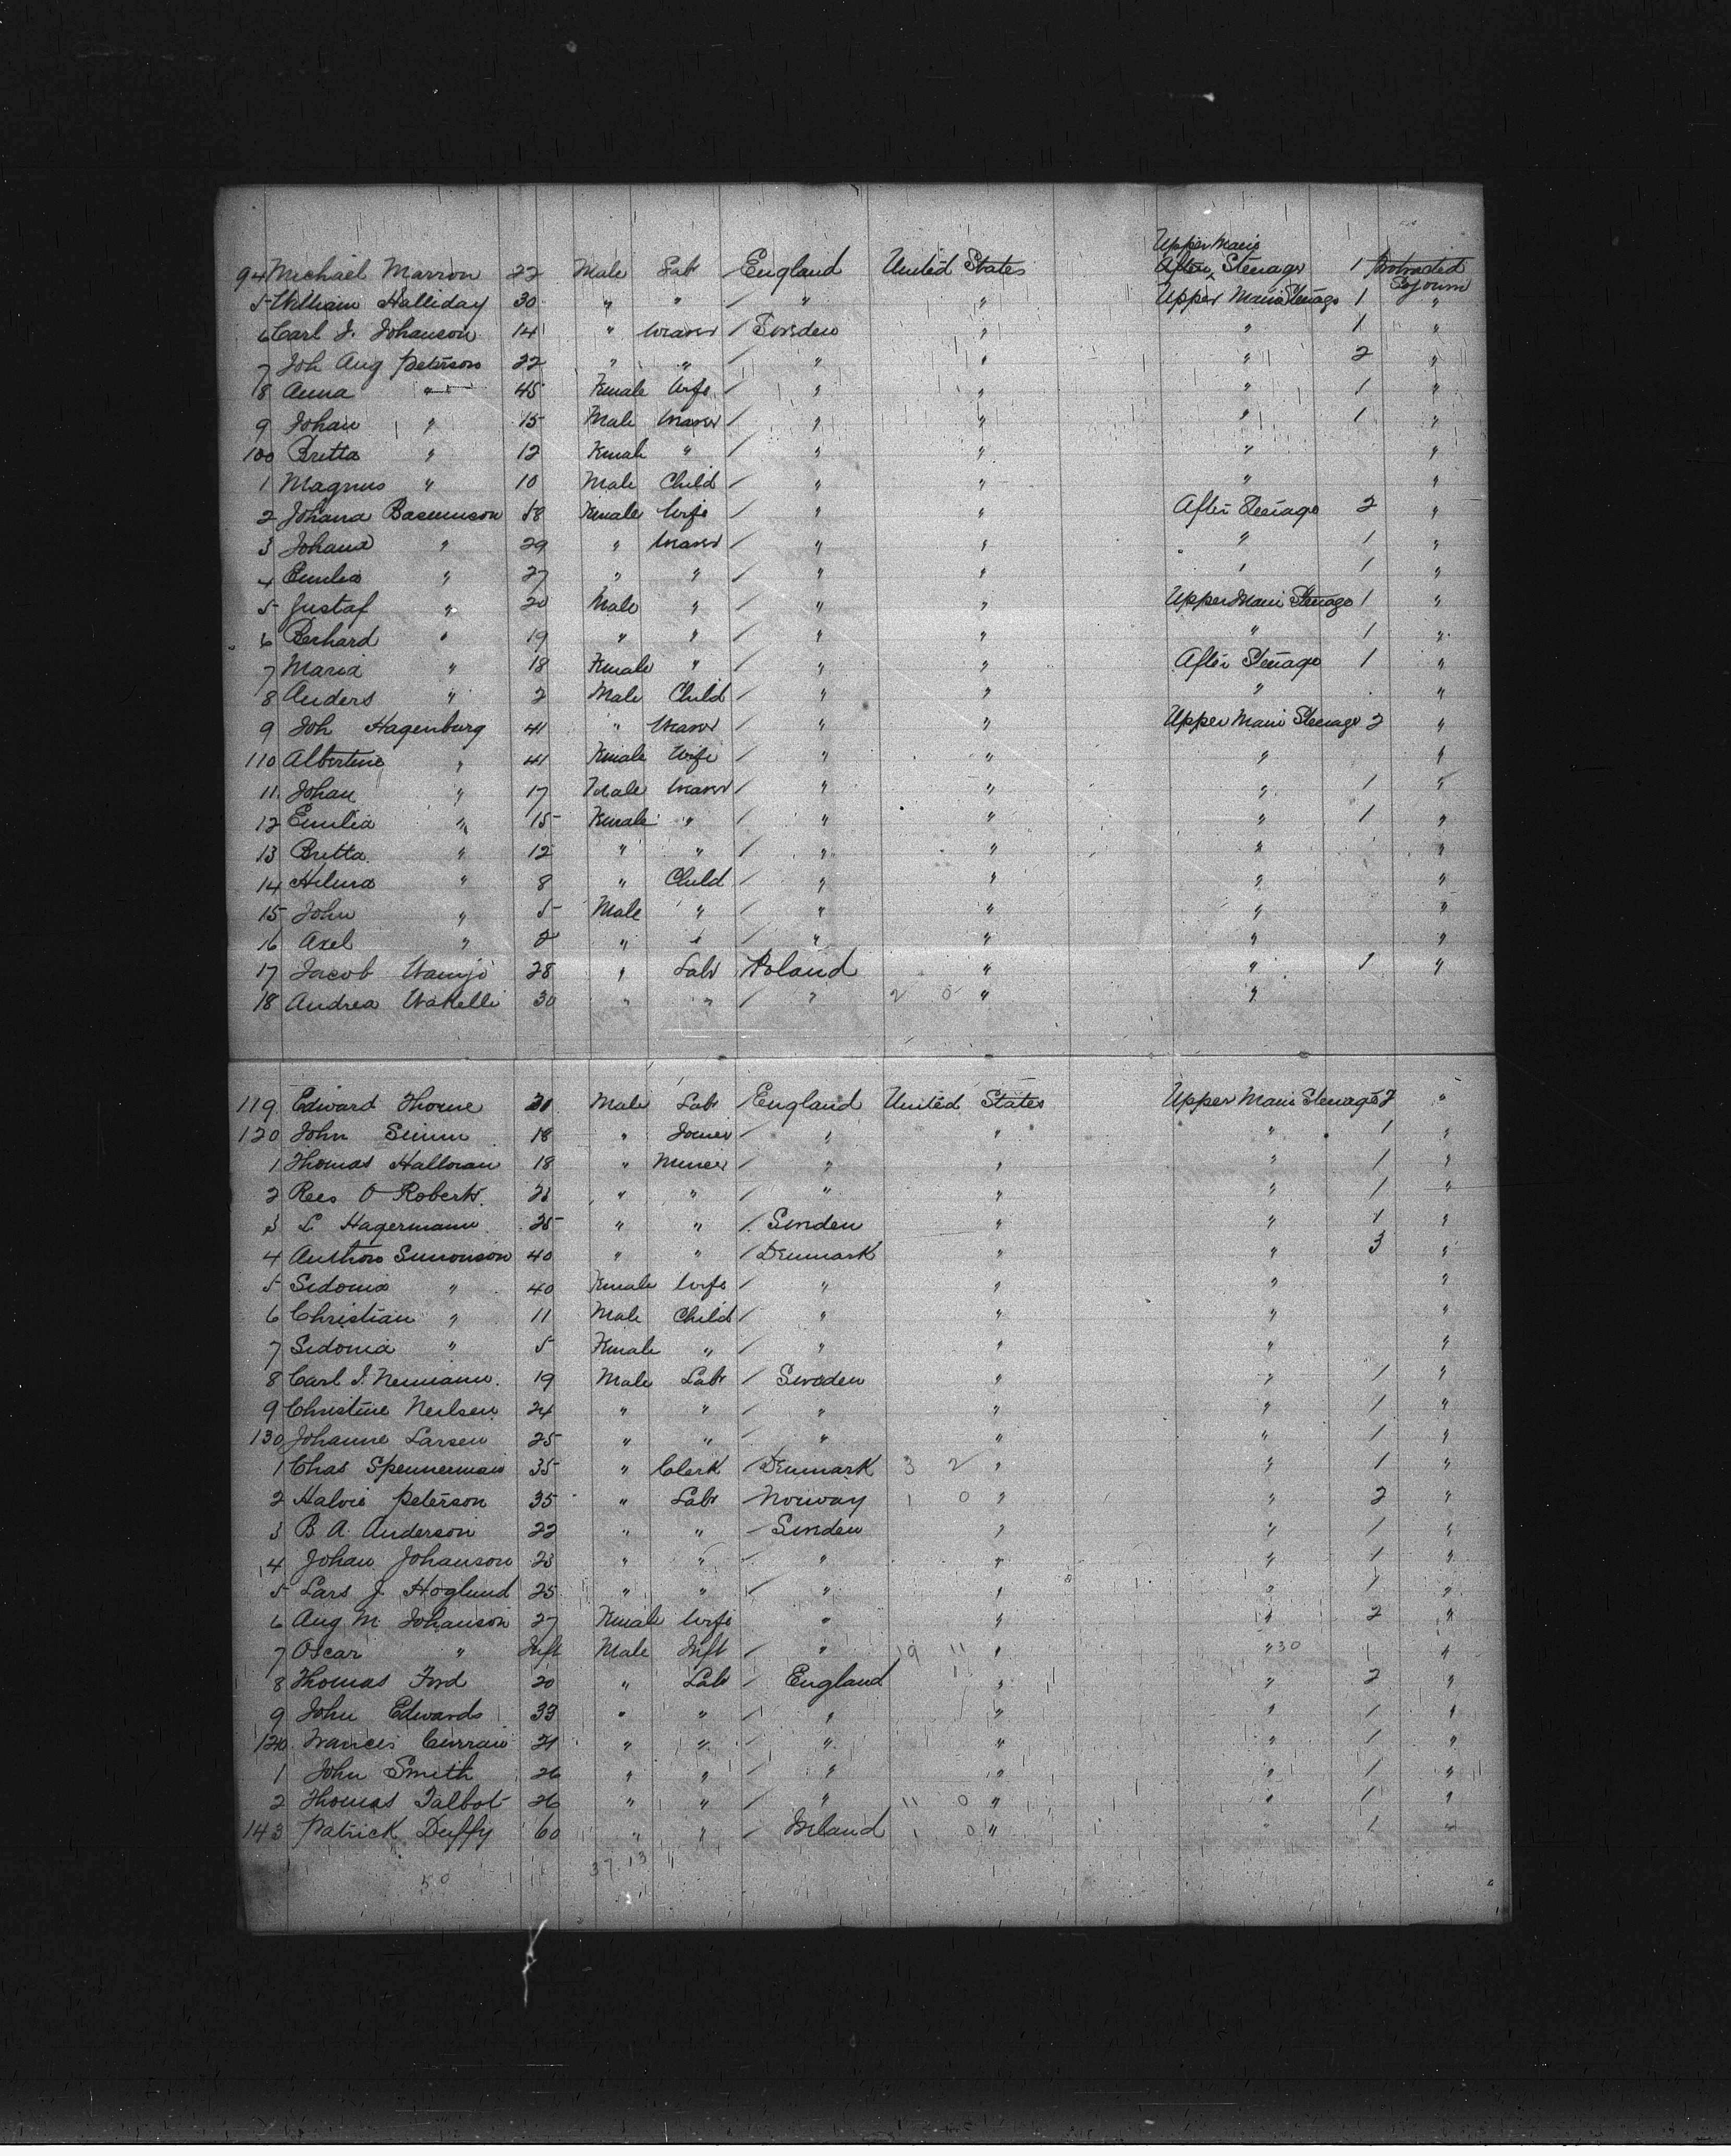 Upper Main
94 Michael Marron 22 Male Labr / England United States After Steerage 1 Protracted Sojourn
5 William Halliday 30 " " / " " Upper Main Steerage 1 "
6 Carl J. Johanson 14 " Weaver / Sweden " " 1 "
7 Joh Aug Peterson 22 " " / " " " 2 "
8 Anna " 45 Female Wife / " " " 1 "
9 Johan " 15 Male Weaver / " " " 1 "
100 Britta " 12 Female " / " " " "
1 Magnus " 10 Male Child / " " " "
2 Johana 58 Female Wife / " " After Steerage 2 "
3 Johana " 29 " Weaver / " " " 1 "
4 Emilia " 27 " " / " " " 1 "
5 Gustaf " 20 Male " / " " Upper Main Steerage 1 "
6 Berhard " 19 " " / " " " 1 "
7 Maria " 18 Female " / " " After Steerage 1 "
8 Anders " 2 Male Child / " " " "
9 Joh Hagenburg 41 " Weaver / " " Upper Main Steerage 2 "
110 Albertine " 41 Female Wife / " " " "
11 Johan " 17 Male Weaver / " " " 1 "
12 Emilia " 15 Female " / " " " 1 "
13 Britta " 12 " " / " " " "
14 Hilma " 8 " Child / " " " "
15 John " 5 Male " / " " " "
16 Axel " 2 " " / " " " "
17 Jacob 28 " Labr Poland " " 1 "
18 Andrea 30 " " / " 2 0 " "
119 Edward Thorne Male Labr / England United States Upper Main Steerage 2 "
120 John 18 " Joiner / " " " 1 "
1 Thomas Halloran 18 " Miner / " " " 1 "
2 Rees O Roberts " " / " " " 1 "
3 L Hagermann 25 " " / Sweden " " 1 "
4 Simonson 40 " " / Denmark " " 3 "
5 Sidonia " 40 Female Wife / " " " "
6 Christian " 11 Male Child / " " " "
7 Sidonia " 5 Female " / " " " "
8 Carl J. Neumann 19 Male Labr / Sweden " " 1 "
9 Christine Neilsen 24 " " / " " " 1 "
130 Johanne Larsen 25 " " / " " " 1 "
1 Chas Spennerman 35 " Clerk / Denmark 3 2 " " 1 "
2 Halvie Peterson 35 " Labr / Norway 1 0 " " 2 "
3 B. A. Anderson 22 " " / Sweden " " 1 "
4 Johan Johanson 23 " " / " " " 1 "
5 Lars J Hoglund 25 " " / " " " 1 "
6 Aug M Johanson 27 Female Wife " " " 2 "
7 Oscar " Inft Male Inft / " 19 11 " " 30 1 "
8 Thomas Ford 20 " Labr / England " " 2 "
9 John Edwards 33 " " / " " " 1 "
140 Francis Curran 21 " " / " " " 1 "
1 John Smith 26 " " / " " " 1 "
2 Thomas Talbot 26 " " / " 11 0 " " 1 "
143 Patrick Duffy 60 " " / Ireland 1 0 " " 1 "
50 37 13